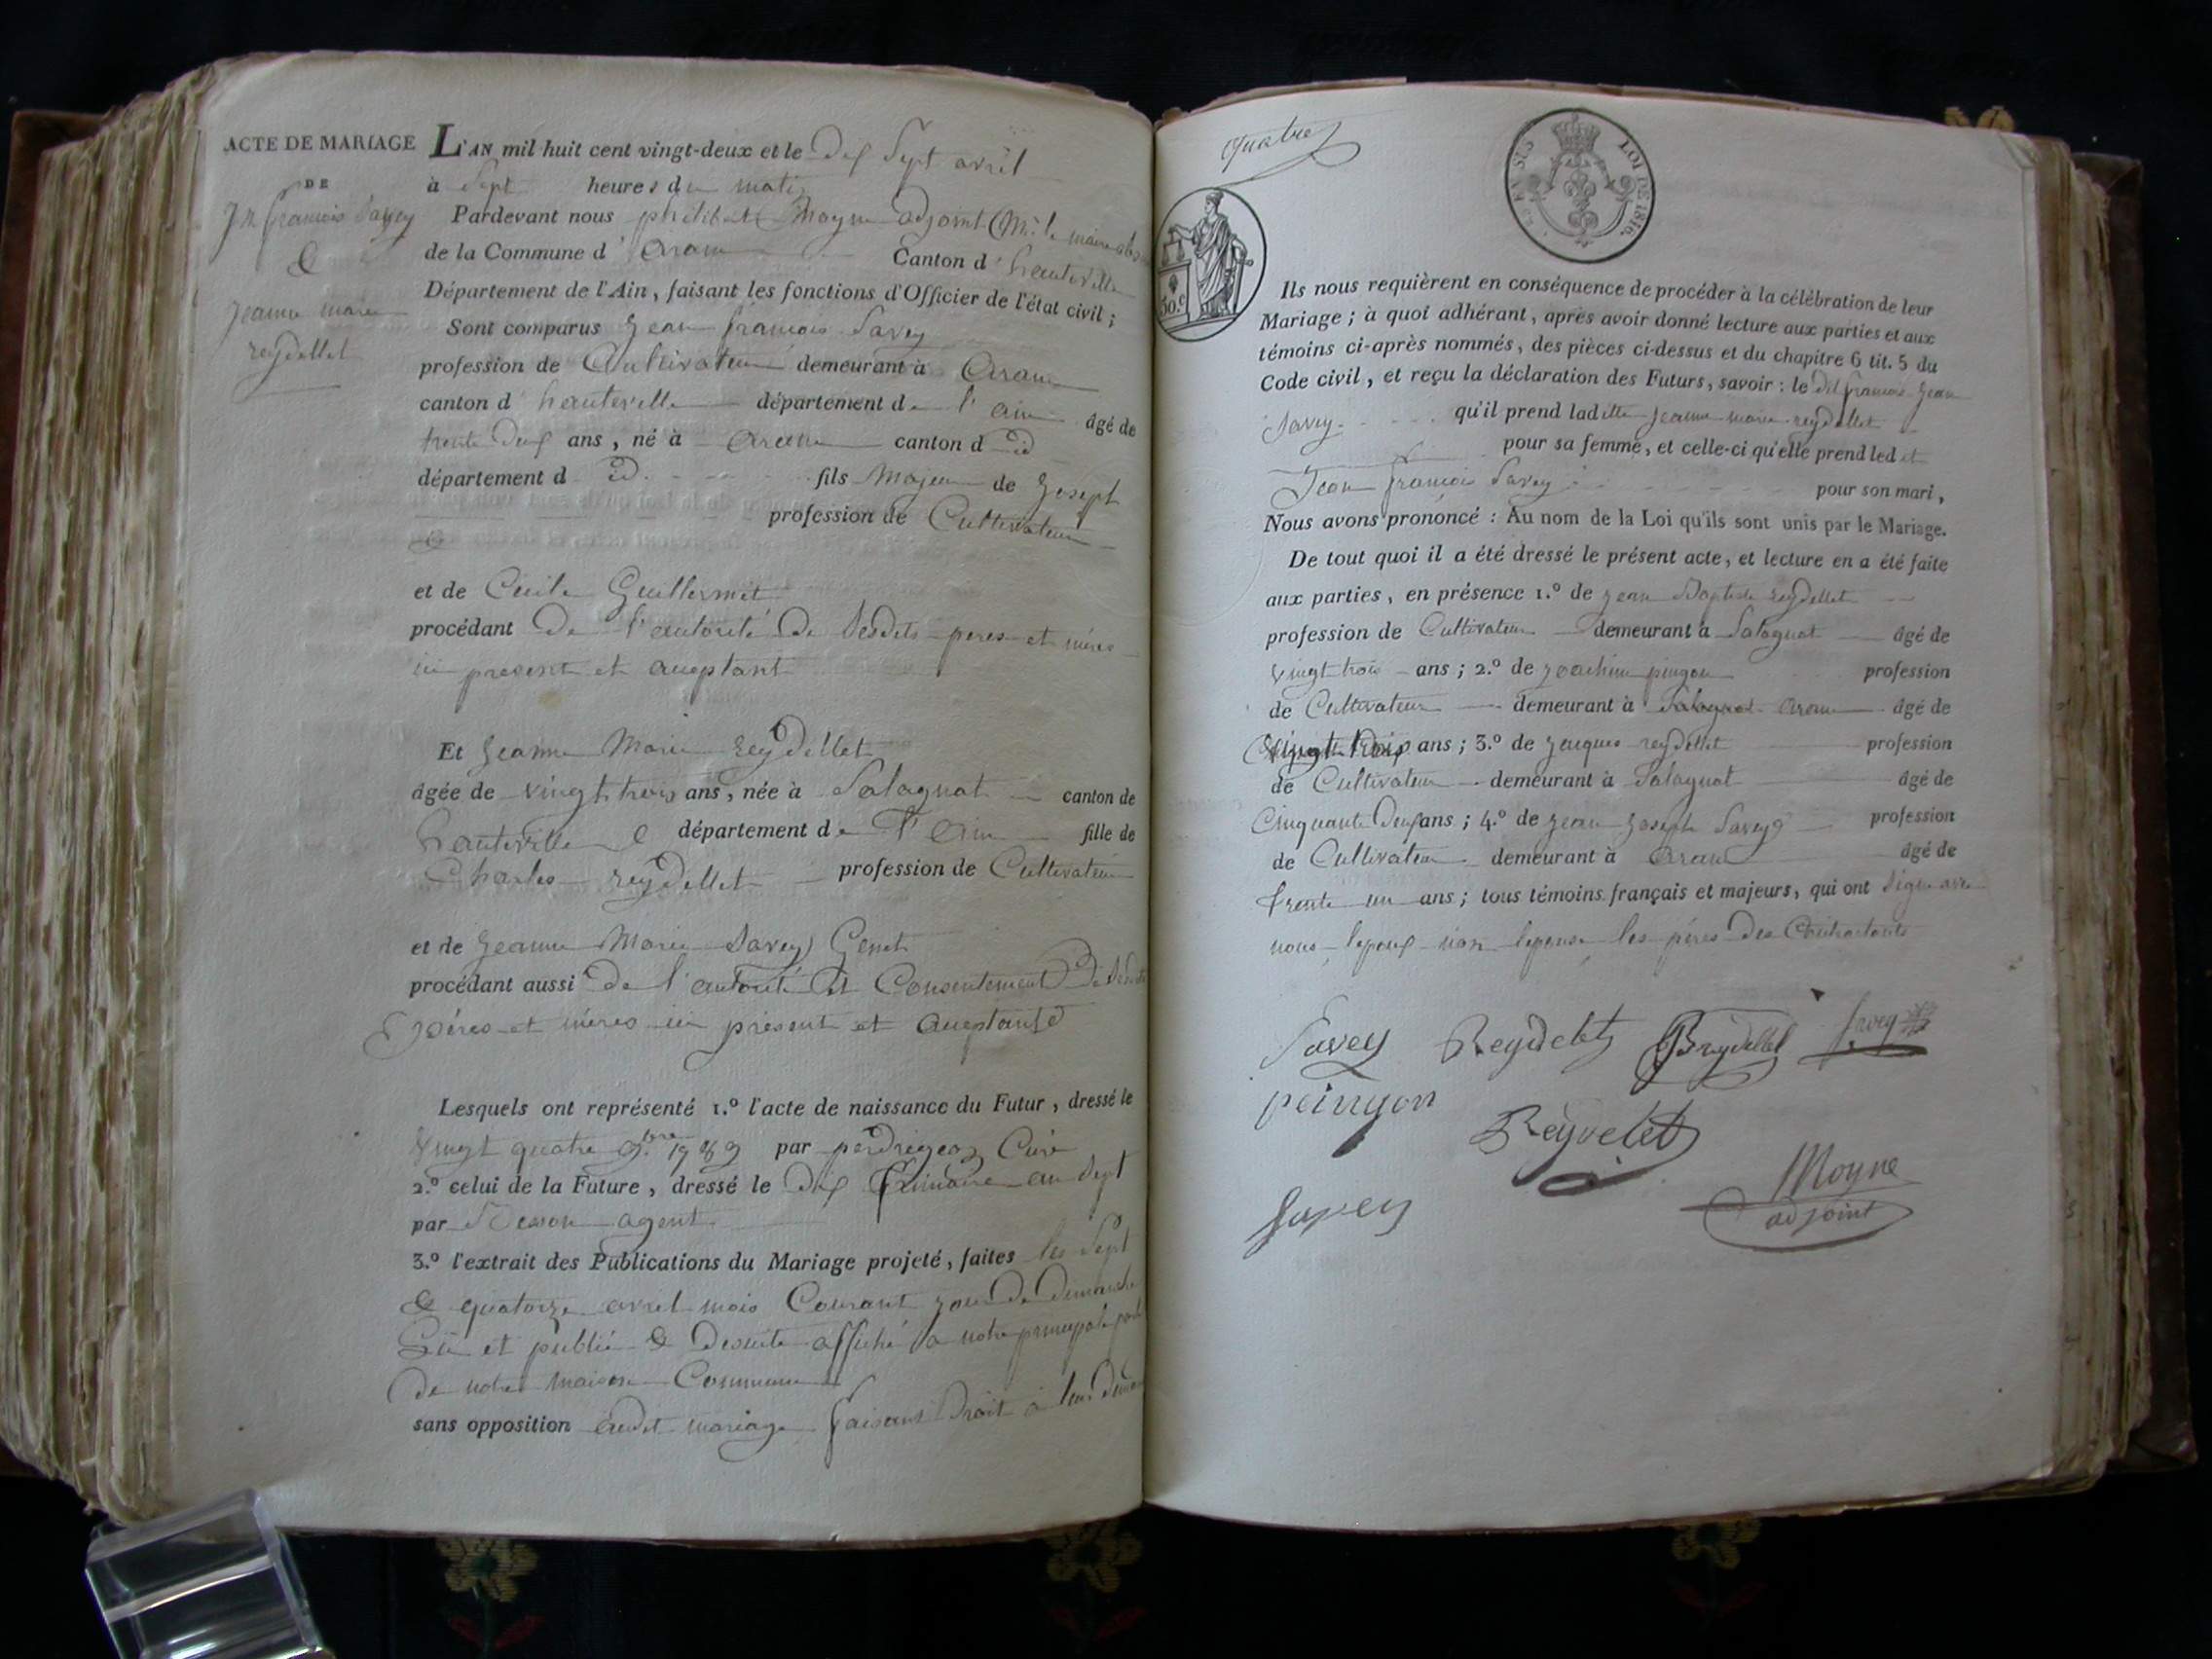 ACTE DE MARIAGE
DE
Jn françois Savey
&
jeanne marie
reydellet
L'AN mil huit cent vingt-deux et le dix Sept avril
à Sept heures du matin
Pardevant nous philibert Moyne adjoint Mr le maire
de la Commune d' Aranc Canton d' hauteville
Département de l'Ain, faisant les fonctions d'Officier de l'état civil ;
Sont comparus Jean françois Savey
profession de Cultivateur demeurant à Aranc
canton d' hauteville département de l'ain âgé de
trente deux ans, né à Aranc canton d id
département d id. fils Majeur de Joseph
profession de Cultivateur
&
et de Cécile Guillermet
procédant De l'autorité De Sesdits peres et mères
ici present et aceptant
Et Jeanne Marie reydellet
âgée de vingt trois ans, née à Salagnat canton de
hauteville département de l'Ain fille de
Charles reydellet profession de Cultivateur
et de Jeanne Marie Savey Genet
procédant aussi De l'autorité et Consentement De Sesdits
pères et mères ici présent et aceptant
Lesquels ont représenté 1.º l'acte de naissance du Futur, dressé le
Vingt quatre 9.bre 1789 par perdrigeon Curé
2.º celui de la Future, dressé le dix frimaire an Sept
par agent
3.º l'extrait des Publications du Mariage projeté, faites les Sept
& quatorze avril mois Courant jour De Dimanche
Lu et publié & Desuite affiché a notre principale porte
De notre maison Commune
sans opposition audit mariage faisant Droit à leur
quatre
LOI DE 1816.
50.c
Ils nous requièrent en conséquence de procéder à la célébration de leur
Mariage ; à quoi adhérant, après avoir donné lecture aux parties et aux
témoins ci-après nommés, des pièces ci-dessus et du chapitre 6 tit. 5 du
Code civil, et reçu la déclaration des Futurs, savoir : le dit françois Jean
Savey qu'il prend ladite jeanne marie reydellet
pour sa femme, et celle-ci qu'elle prend ledit
Jean françois Savey pour son mari,
Nous avons prononcé : Au nom de la Loi qu'ils sont unis par le Mariage.
De tout quoi il a été dressé le présent acte, et lecture en a été faite
aux parties, en présence 1.º de jean Baptiste reydellet
profession de Cultivateur demeurant à Salagnat âgé de
vingt trois ans ; 2.º de joachim pingon profession
de Cultivateur demeurant à Salagnat Aranc âgé de
ans ; 3.º de jacques reydellet profession
de Cultivateur demeurant à Salagnat âgé de
Cinquante deux ans ; 4.º de jean Joseph Savey profession
de Cultivateur demeurant à Aranc âgé de
trente un ans ; tous témoins français et majeurs, qui ont Signé avec
nous lepoux non lepouse les pères des Contractants
Savey Reydelet BReydellet Savey
peingon
Reydelet
Savey
Moyne
adjoint